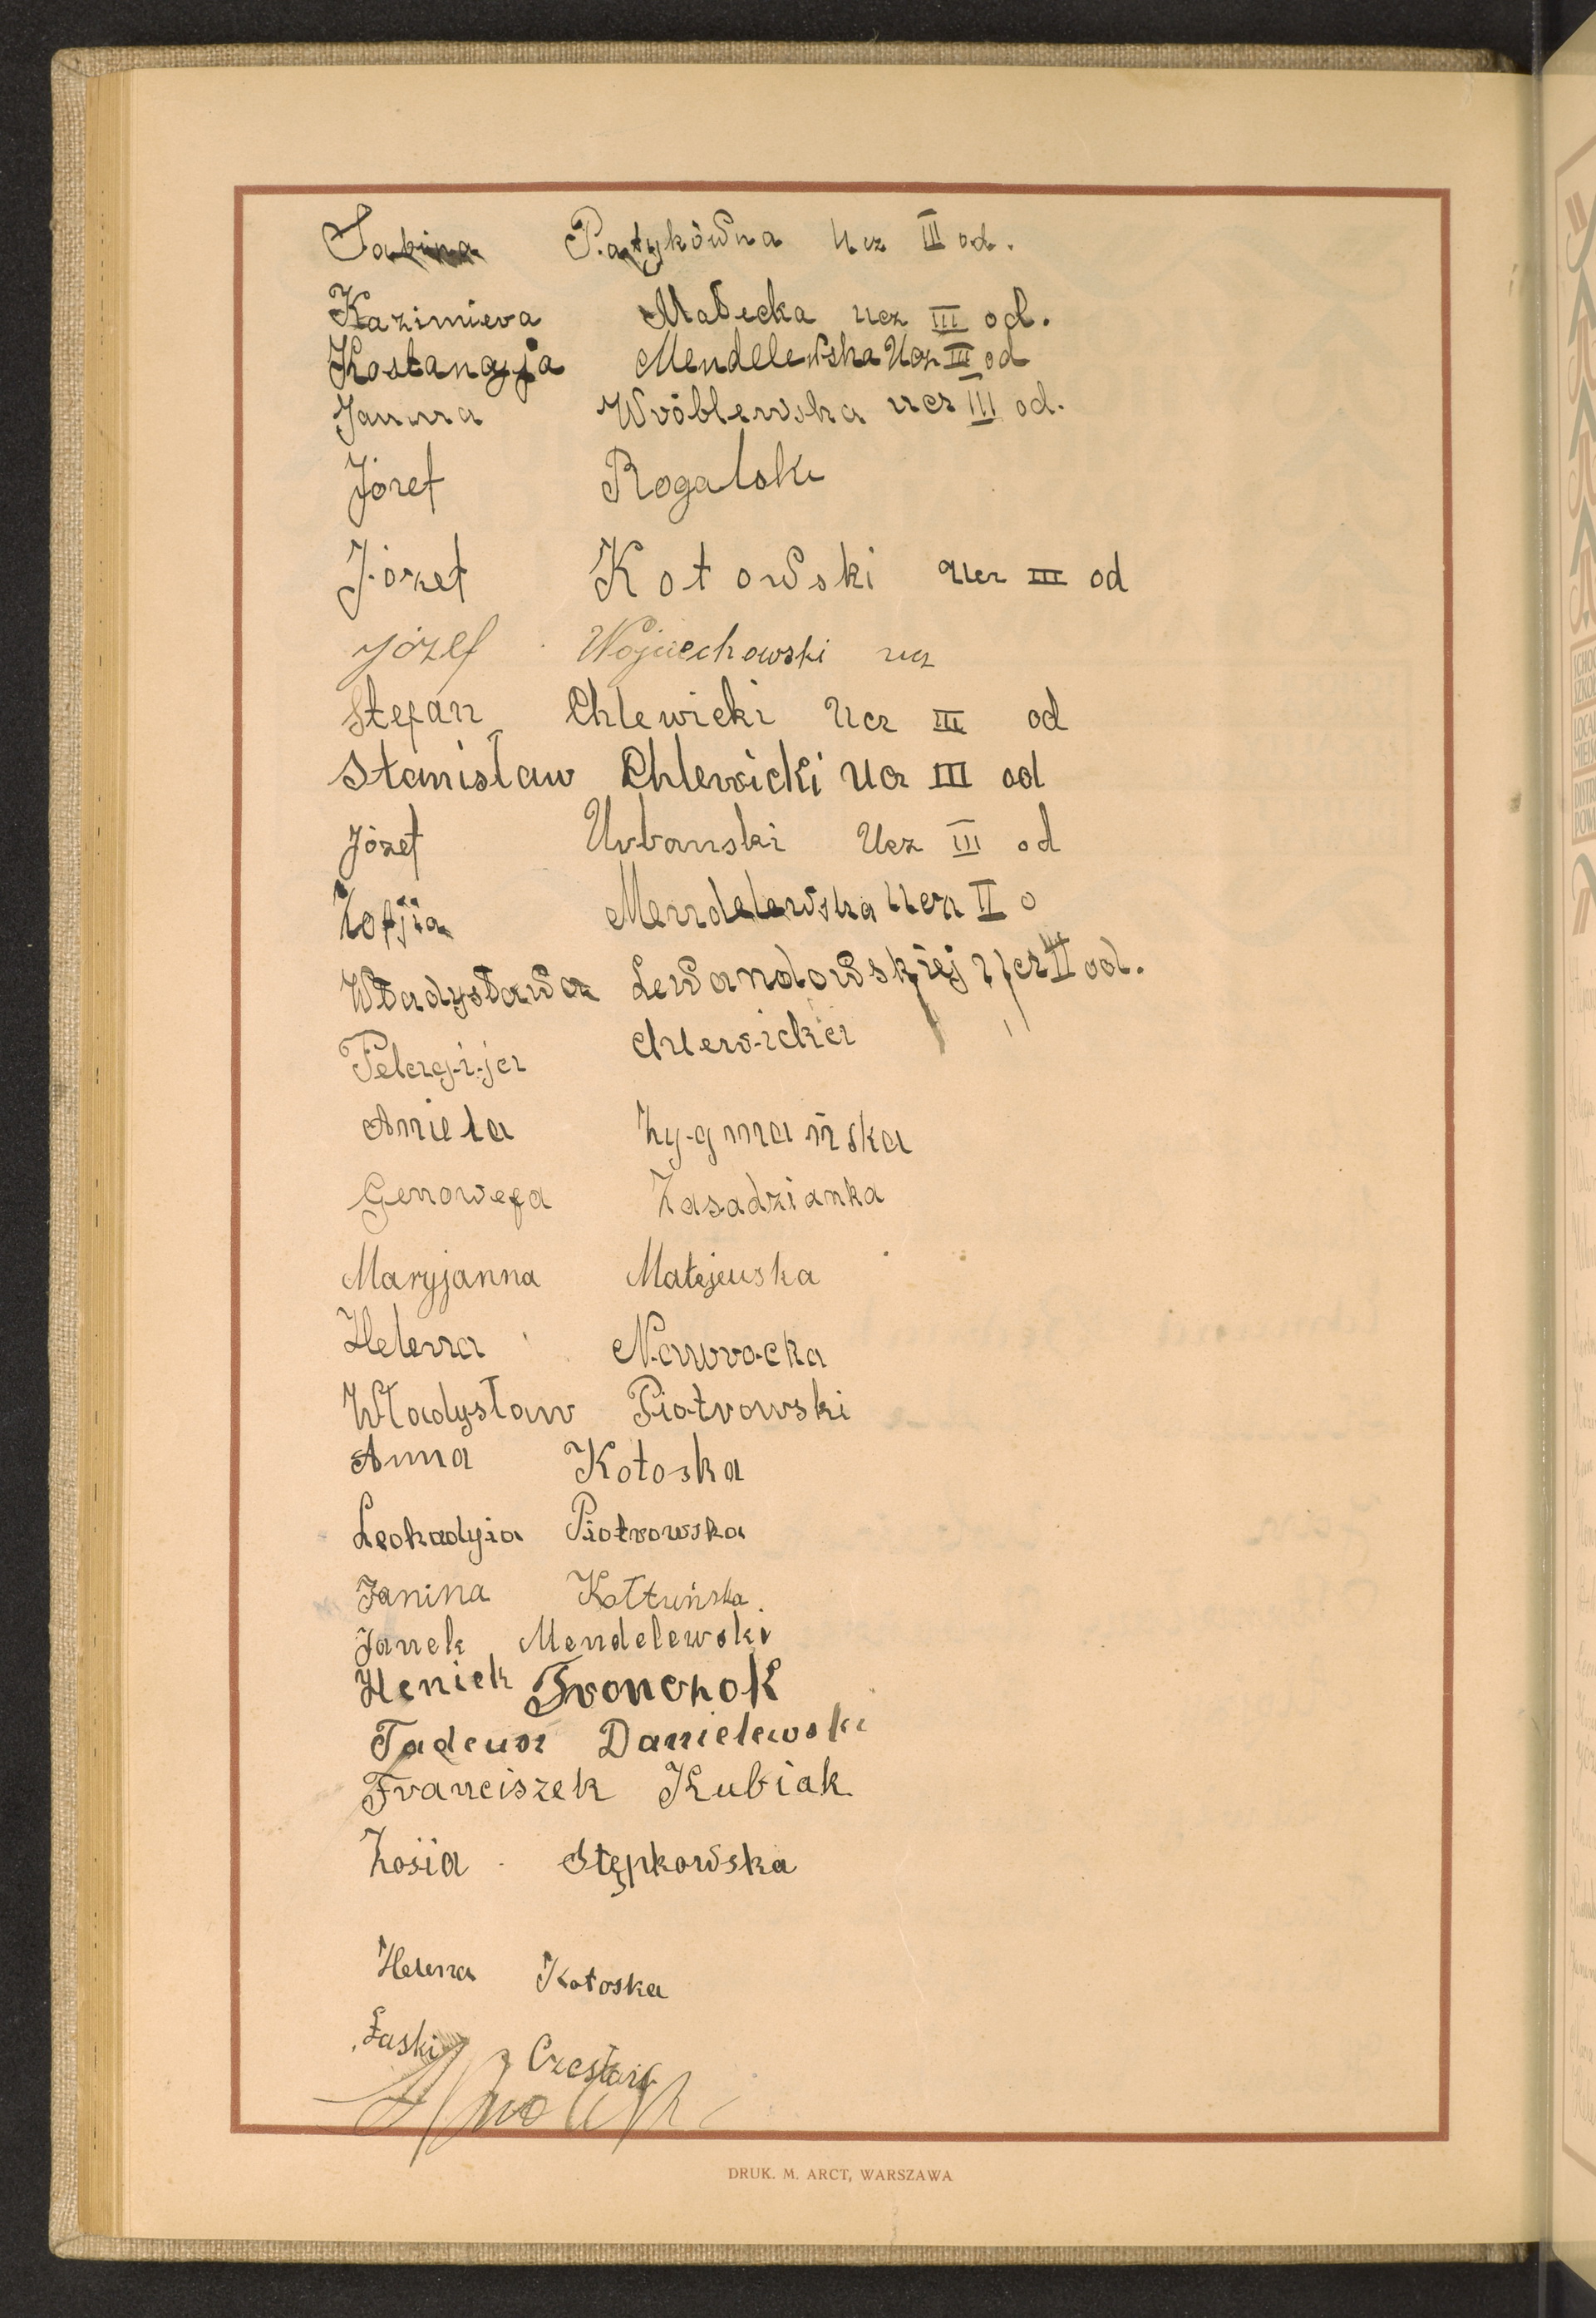 Sabina Patykówna Ucz III od.
Kazimiera Małecka ucz III od.
Kostancyja Mendelewska Ucz III od
Janina Wróblewska ucz III od.
Józef Rogalski
Józef Kotowski Ucz III od
Józef Wojciechowski ucz
Stefan Chlewicki Ucz III od
Stanisław Chlewicki Ucz III od
Józef Urbanski Ucz III od
Zofjia Mendelewska Ucz II o
Władysława Lewandowskiej Ucz II od.
Pelagija Chlewicka
Aniela Zygmańska
Genowefa Zasadzianka
Maryjanna Matejeuska
Helena Nawrocka
Władysław Piotrowski
Anna Kotoska
Leokadyia Piotrowska
Janina Kołtuńska.
Janek Mendelewski
Heniek Fronczok
Tadeusz Danielewski
Franciszek Kubiak
Zosia Stępkowska
Helena Kotoska
Łaski Czesław
DRUK. M. ARCT, WARSZAWA